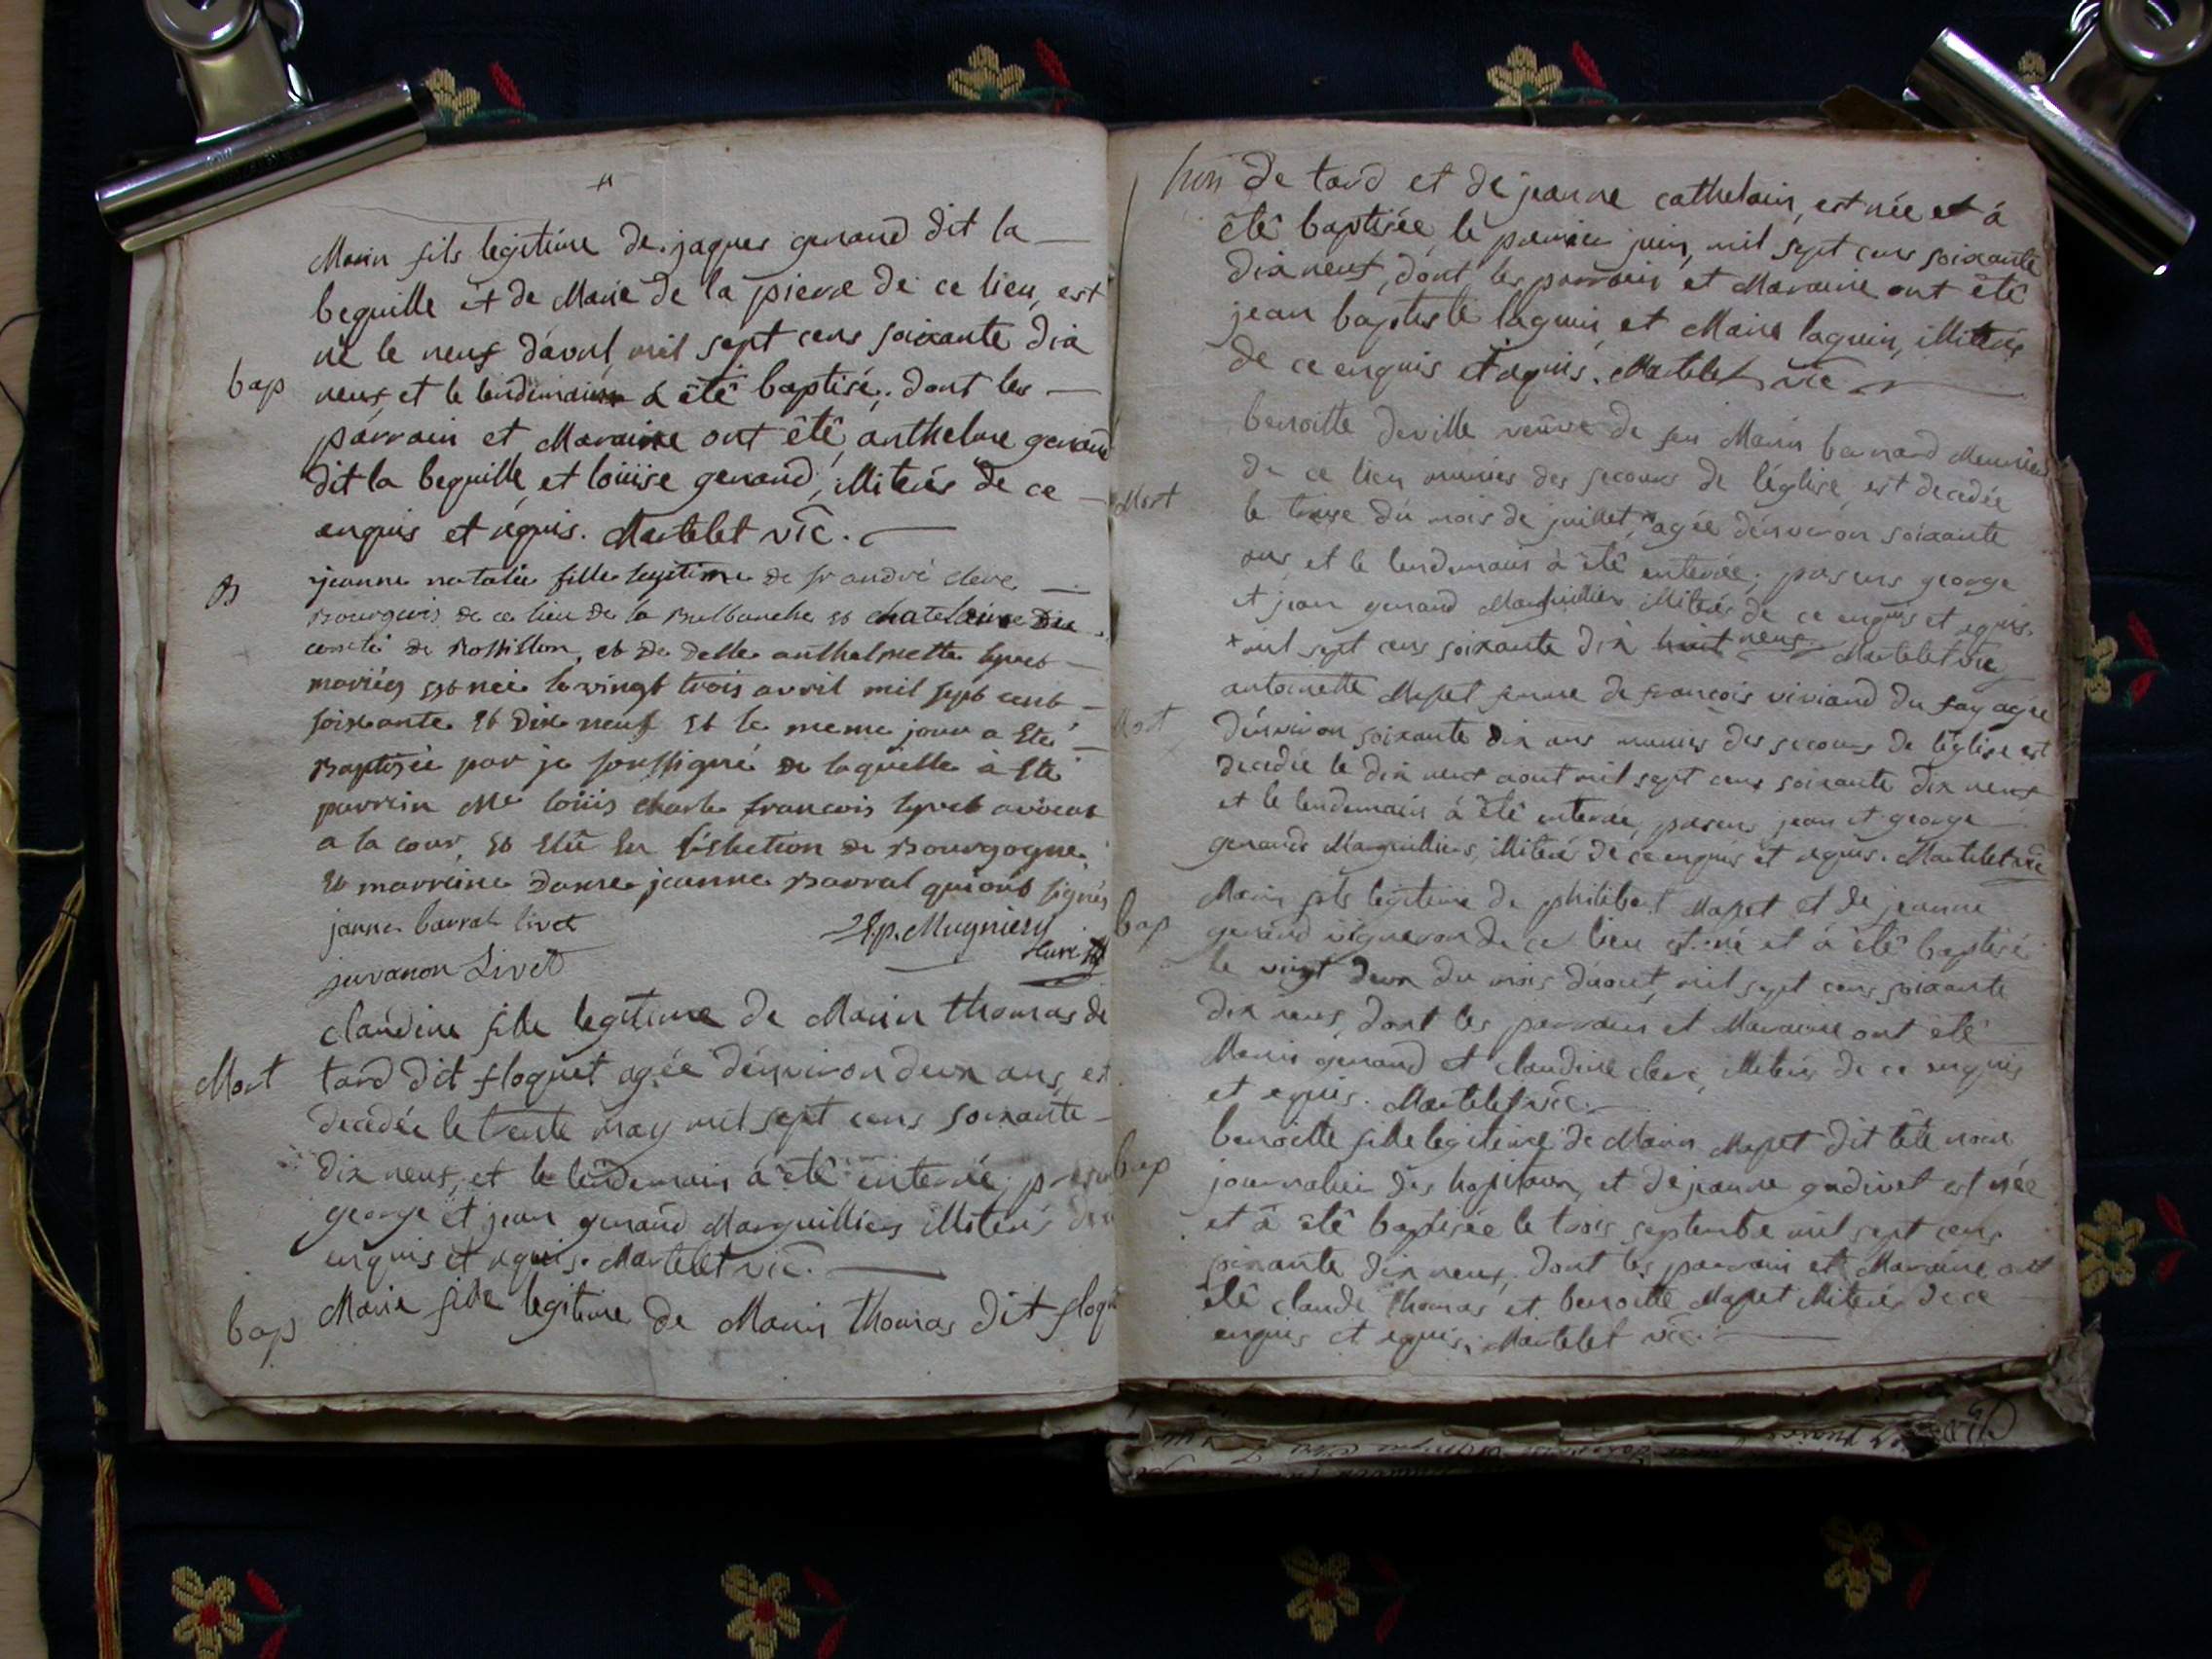 Marin fils legitime de jaques genand dit la
beguille et de Marie de la pierre de ce lieu, est
né le neuf davril mil sept cens soixante dix
bap
neuf et le lendemain à êtê baptisé, dont les
parrain et Maraine ont êtê anthelme genand
dit la beguille et loüise genand, illiterés de ce
enquis et rêquis. Martelet vic.
B
jeanne natalie fille legitime de sr andré cleve
Bourgeois de ce lieu de la Balbanche et chatelaine du
comté de Rossillon, et de delle anthelmette lyvet
mariés est née le vingt trois avril mil sept cent
soixante et dix neuf et le meme jour a Eté
Baptisée par je soussigné de laquelle à Eté
parrein Me loüis charle francois lyvet avocat
a la cour et Elû En l'élection de Bourgogne
Et marreine dame jeanne Barral qui ont signés
janne barral livet
juvanon Livet
Mugniery
Curé
claudine fille legitime de Marin thomas de
Mort
tard dit floquet agée dénviron deux ans, est
decedée le trente may mil sept cens soixante
dix neuf, et le lendemain à êtê enterrée, presens
george et jean genand Marguilliers illiterés de ce
enquis et rêquis. Martelet vic.
bap
Marie fille legitime de Marin thomas dit floq
de tard et de jeanne cathelain, est née et à
êtê baptisée, le premier juin, mil sept cens soixante
dix neuf, dont les parrain et Maraine ont êtê
jean baptiste laguin, et Marie laguin, illiterés
de ce enquis et rêquis. Martelet vic
benoitte deville veuve de feu Marin bernard Meunier
de ce lieu munies des secours de l'église est decedée
Mort
le treise du mois de juillet + agée dénviron soixante
ans, et le lendemain à êtê enterrée; presens george
et jean genand Marguilliers illiterés de ce enquis et rêquis.
+ mil sept cens soixante dix huit neuf. Martelet vic
antoinette Mapet femme de francois viviand du fay agée
Mort
dénviron soixante dix ans munies des secours de l'église est
decedée le dix neuf aout mil sept cens soixante dix neuf
et le lendemain à êtê enterrée, presens jean et george
genands Marguilliers, illiterés de ce enquis et rêquis. Martelet vic
Marin fils legitime de philibert Mapet et de jeanne
bap
genand vigneron de ce lieu est né et à êtê baptisé
le vingt deux du mois daout, mil sept cens soixante
dix neuf, dont les parrain et Maraine ont êtê
Marin genand et claudine cleve, illiterés de ce enquis
et rêquis. Martelet vic.
benoitte fille legitime de Marin Mapet dit tête noire
bap
journalier des hopitaux, et de jeanne gudivet est née
et à êtê baptisée le trois septembre mil sept cens
soixante dix neuf, dont les parrain et Maraine ont
êtê claude thomas et benoitte Mapet illiterés de ce
enquis et rêquis. Martelet vic.